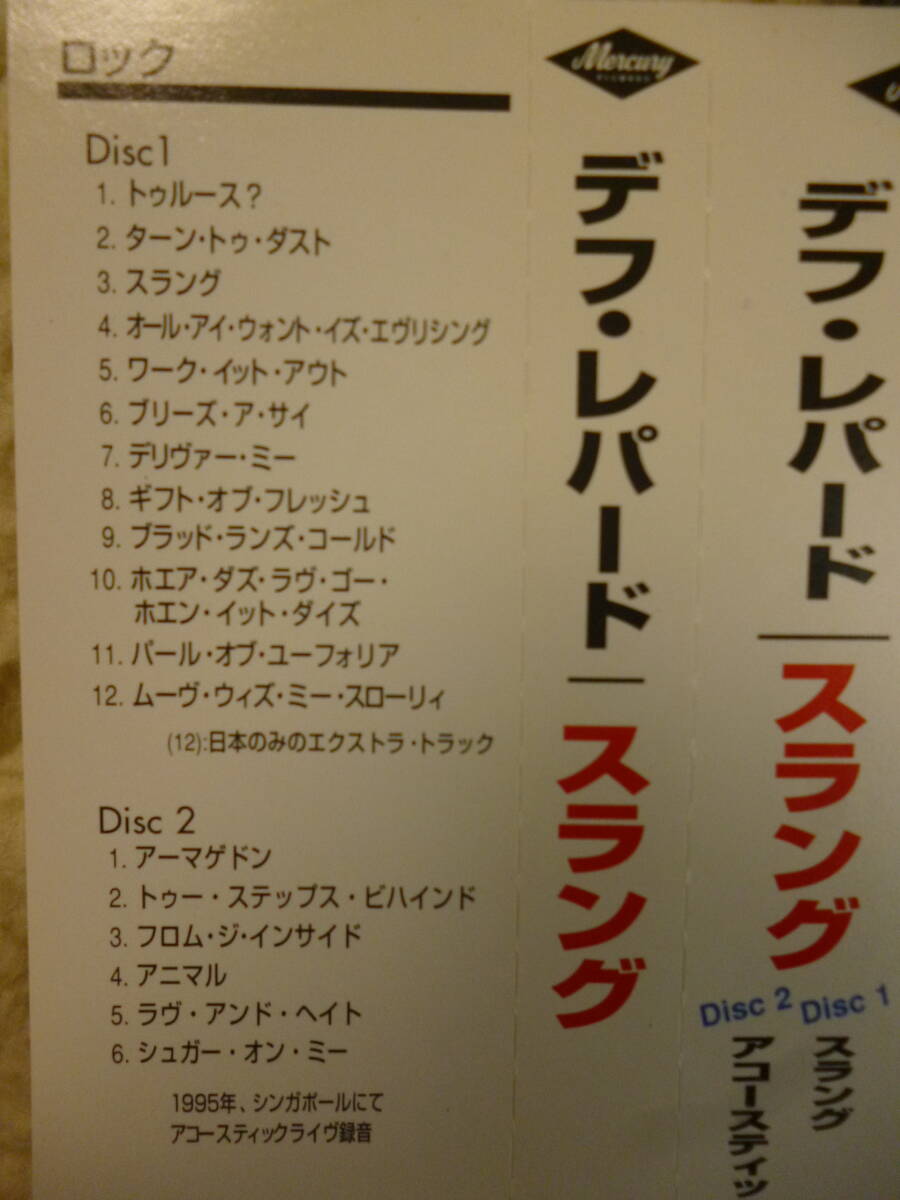 ロック
Disc1
1. トゥルース?
2. ターン・トゥ・ダスト
3. スラング
4. オール・アイ・ウォント・イズ・エヴリシング
5. ワーク・イット・アウト
6. ブリーズ・ア・サイ
7. デリヴァー・ミー
8. ギフト・オブ・フレッシュ
9. ブラッド・ランズ・コールド
10. ホエア・ダズ・ラヴ・ゴー・
ホエン・イット・ダイズ
11. パール・オブ・ユーフォリア
12. ムーヴ・ウィズ・ミー・スローリィ
(12):日本のみのエクストラ・トラック
Disc 2
1. アーマゲドン
2. トゥー・ステップス・ビハインド
3. フロム・ジ・インサイド
4. アニマル
5. ラヴ・アンド・ヘイト
6. シュガー・オン・ミー
1995年、シンガポールにて
アコースティックライヴ録音
Mercury
デフ・レパード
スラング
デフ・レパード
スラング
Disc 1
スラング
Disc 2
アコースティッ